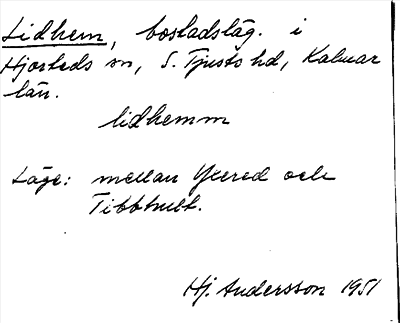 Lidhem, bostadsläg. i
Hjorteds sn, S. Tjusts hd, Kalmar
län.
lidhemm
Läge: mellan Yxered och
Tibbhult.
Hj. Andersson 1951